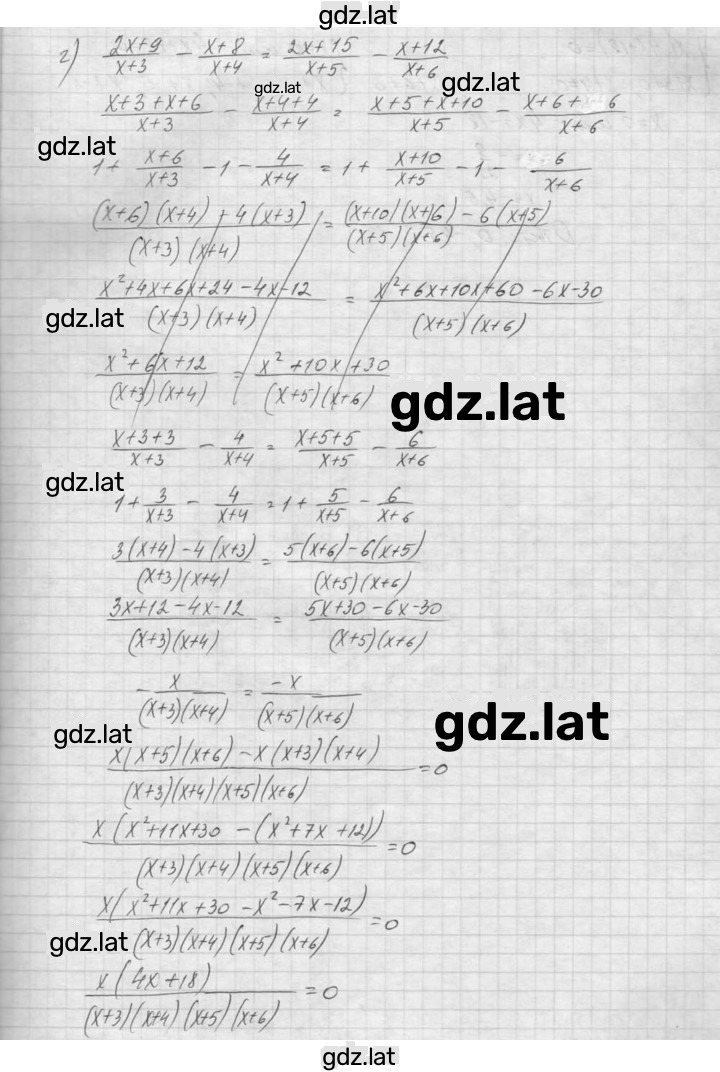 gdz.lat
г) (2x+9)/(x+3) - (x+8)/(x+4) = (2x+15)/(x+5) - (x+12)/(x+6)
gdz.lat
gdz.lat
(x+3+x+6)/(x+3) - (x+4+4)/(x+4) = (x+5+x+10)/(x+5) - (x+6+ 6)/(x+6)
gdz.lat
1+ (x+6)/(x+3) - 1 - 4/(x+4) = 1+ (x+10)/(x+5) - 1 - 6/(x+6)
((x+6)(x+4) - 4(x+3))/((x+3)(x+4)) = ((x+10)(x+6) - 6(x+5))/((x+5)(x+6))
(x²+4x+6x+24-4x-12)/((x+3)(x+4)) = (x²+6x+10x+60-6x-30)/((x+5)(x+6))
gdz.lat
(x²+6x+12)/((x+3)(x+4)) = (x²+10x+30)/((x+5)(x+6))
gdz.lat
(x+3+3)/(x+3) - 4/(x+4) = (x+5+5)/(x+5) - 6/(x+6)
gdz.lat
1+ 3/(x+3) - 4/(x+4) = 1+ 5/(x+5) - 6/(x+6)
(3(x+4)-4(x+3))/((x+3)(x+4)) = (5(x+6)-6(x+5))/((x+5)(x+6))
(3x+12-4x-12)/((x+3)(x+4)) = (5x+30-6x-30)/((x+5)(x+6))
- x/((x+3)(x+4)) = -x/((x+5)(x+6))
gdz.lat
gdz.lat
(x(x+5)(x+6)-x(x+3)(x+4))/((x+3)(x+4)(x+5)(x+6)) = 0
(x(x²+11x+30-(x²+7x+12)))/((x+3)(x+4)(x+5)(x+6)) = 0
(x(x²+11x+30-x²-7x-12))/((x+3)(x+4)(x+5)(x+6)) = 0
gdz.lat
(x(4x+18))/((x+3)(x+4)(x+5)(x+6)) = 0
gdz.lat